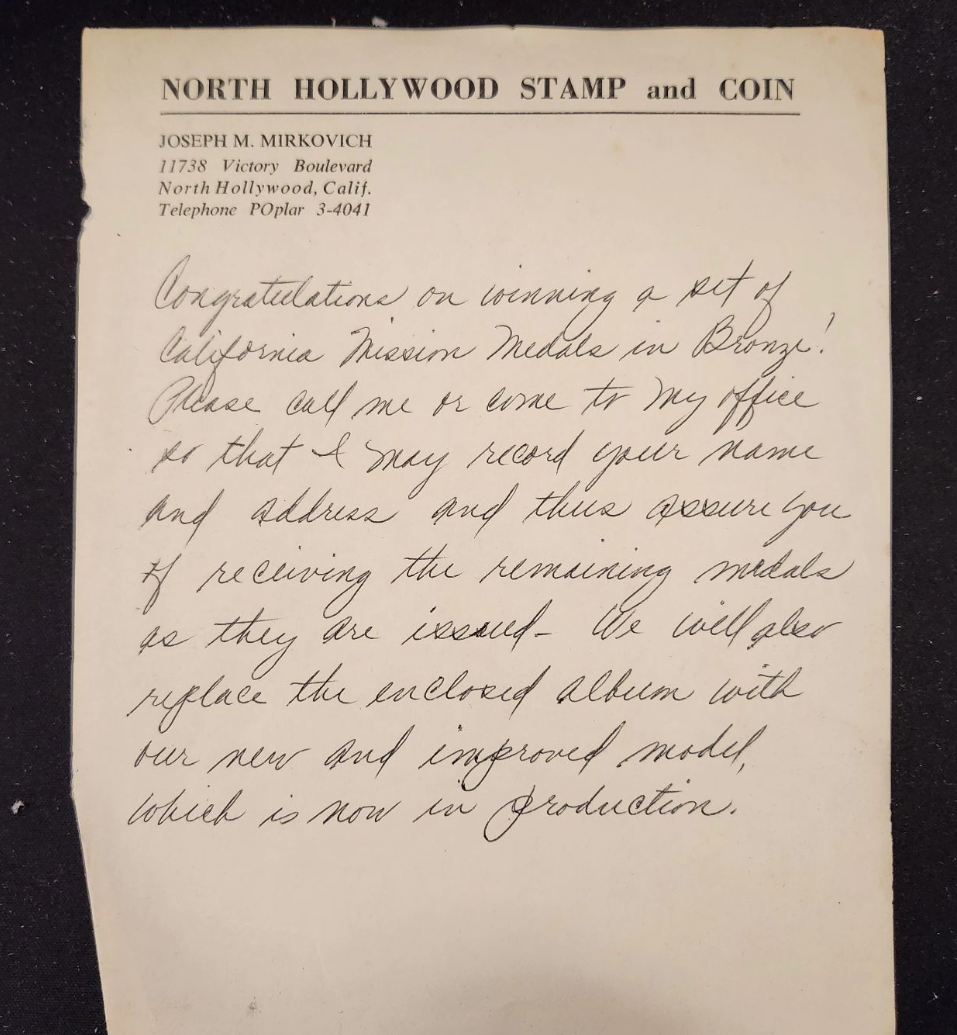 NORTH HOLLYWOOD STAMP and COIN
JOSEPH M. MIRKOVICH
11738 Victory Boulevard
North Hollywood, Calif.
Telephone POplar 3-4041
Congratulations on winning a set of
California Mission Medals in Bronze!
Please call me or come to my office
so that I may record your name
and address and thus assure you
of receiving the remaining medals
as they are issued - We will also
replace the enclosed album with
our new and improved model,
which is now in production.